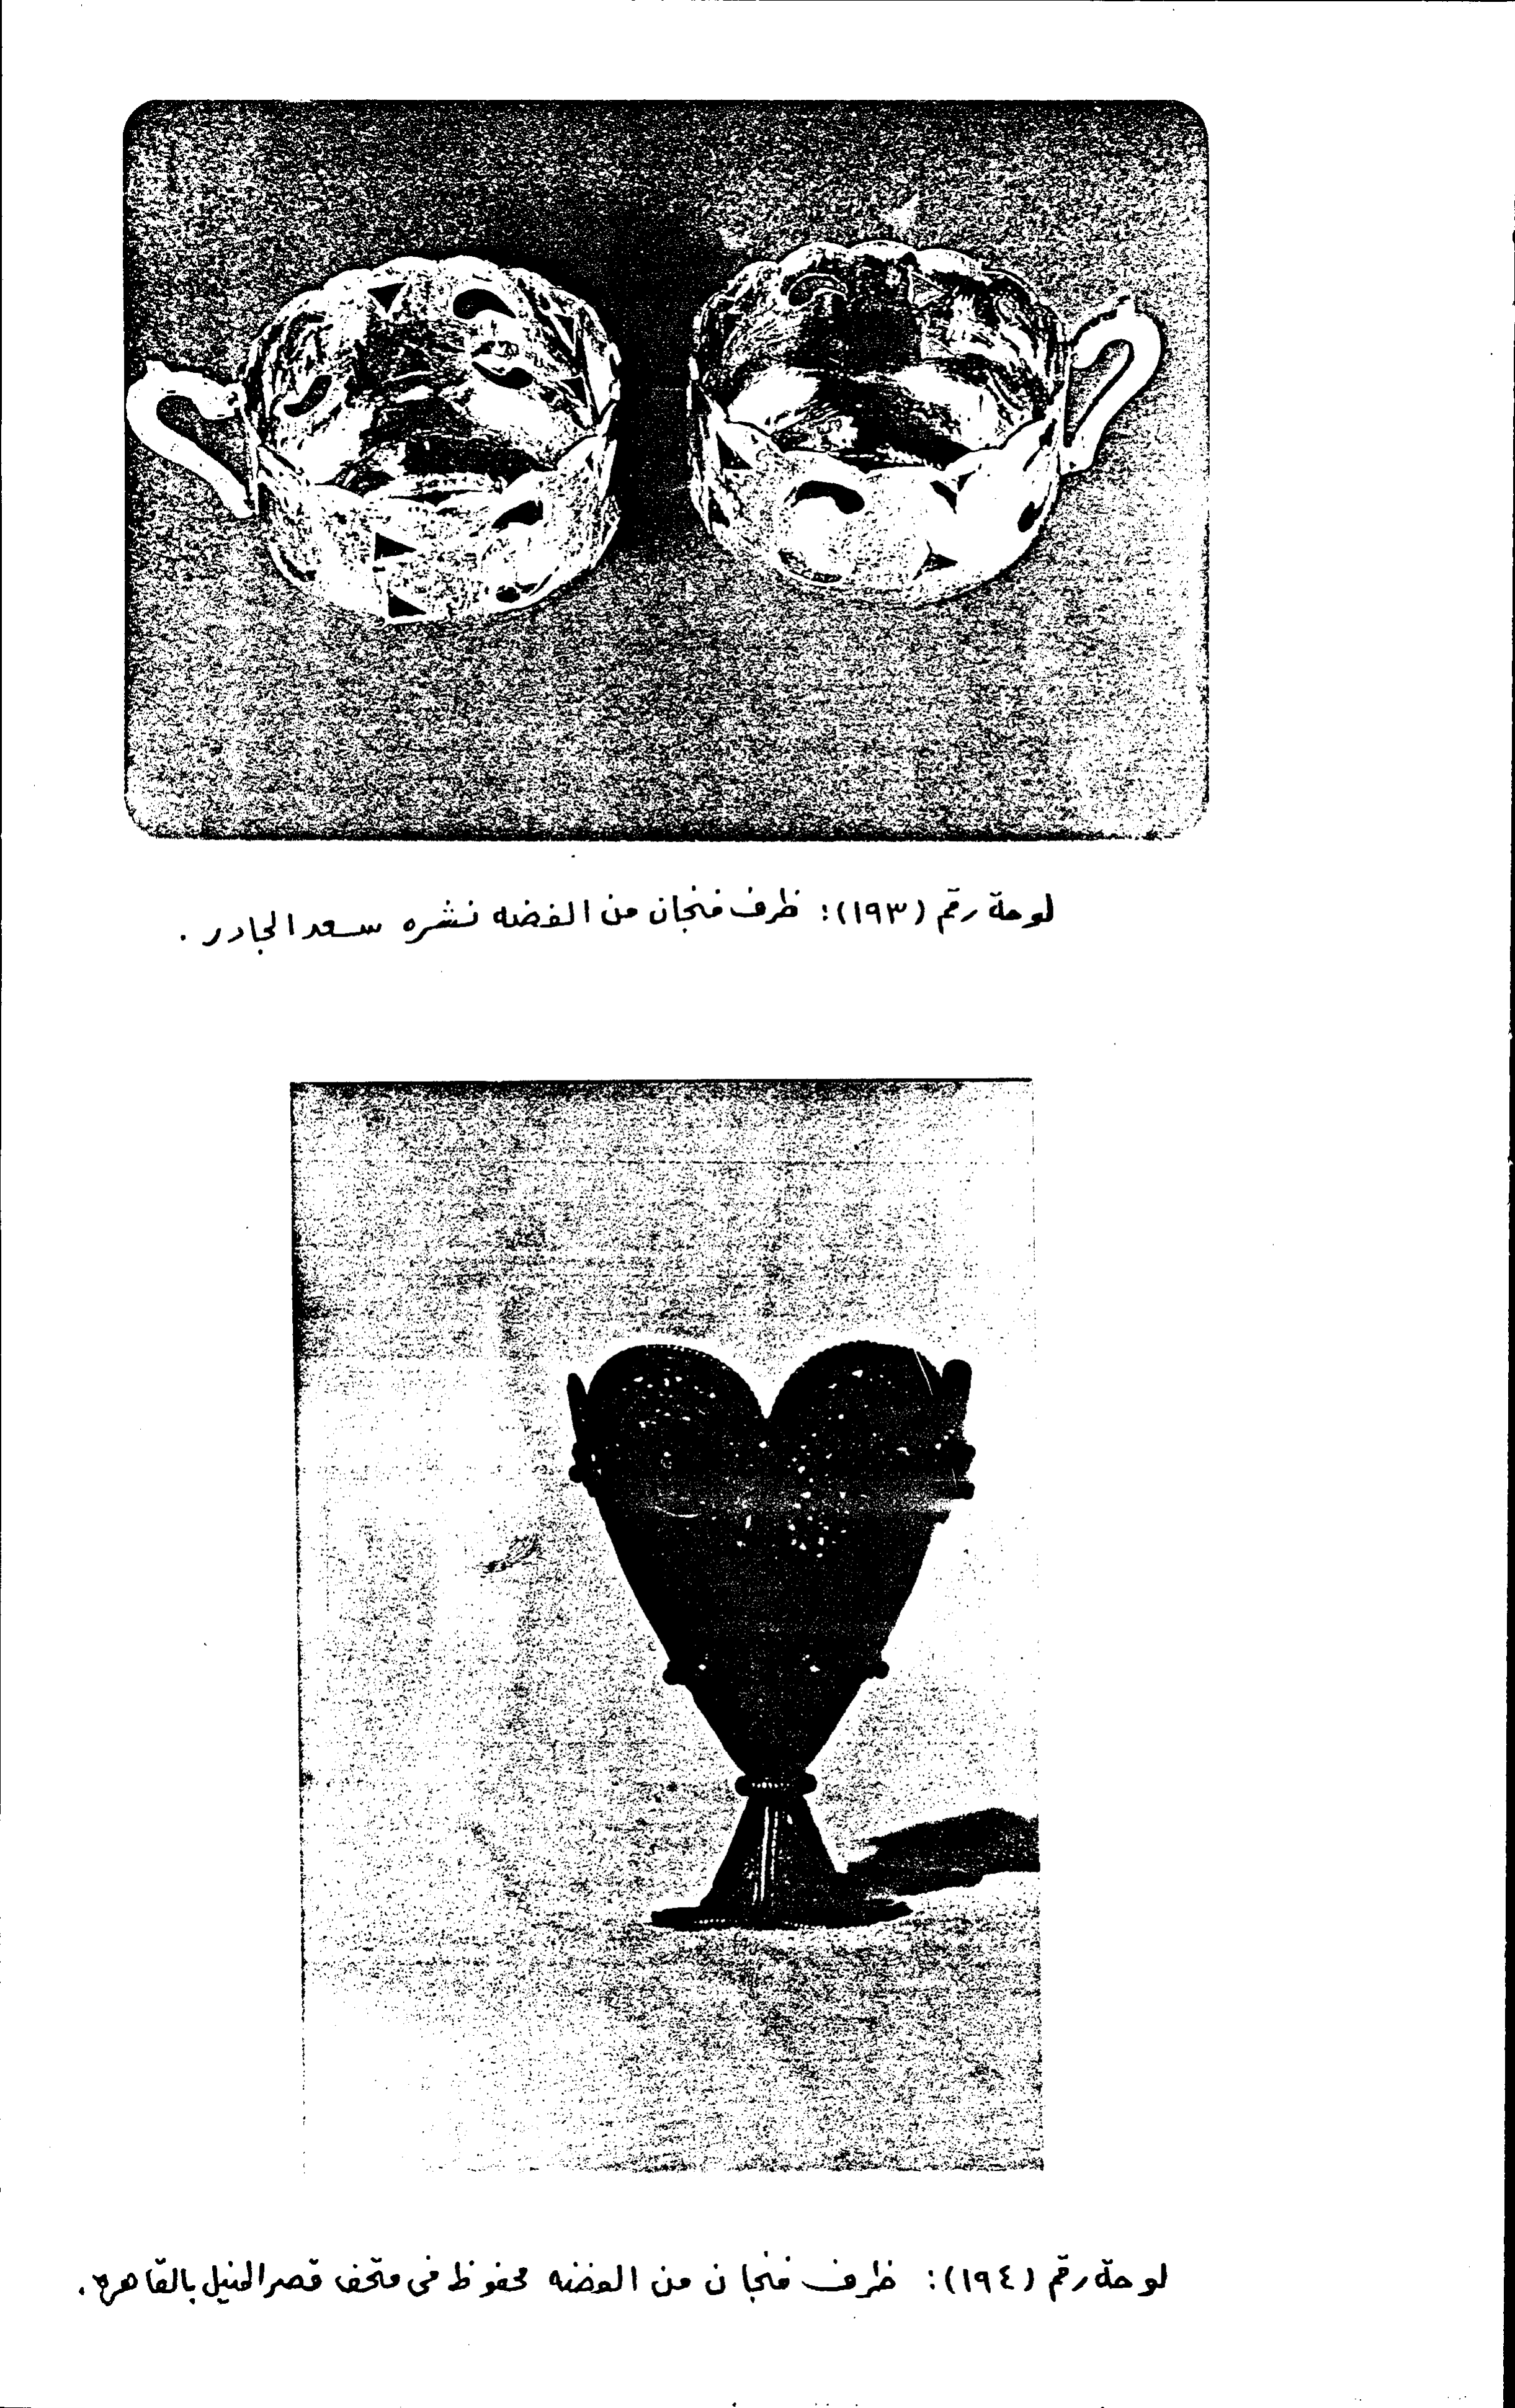 لوحة رقم (١٩٣): ظرف فنجان من الفضه نشره سعد الجادر .
لوحة رقم (١٩٤): ظرف فنجان من الفضه محفوظ فى متحف قصر المنيل بالقاهره .